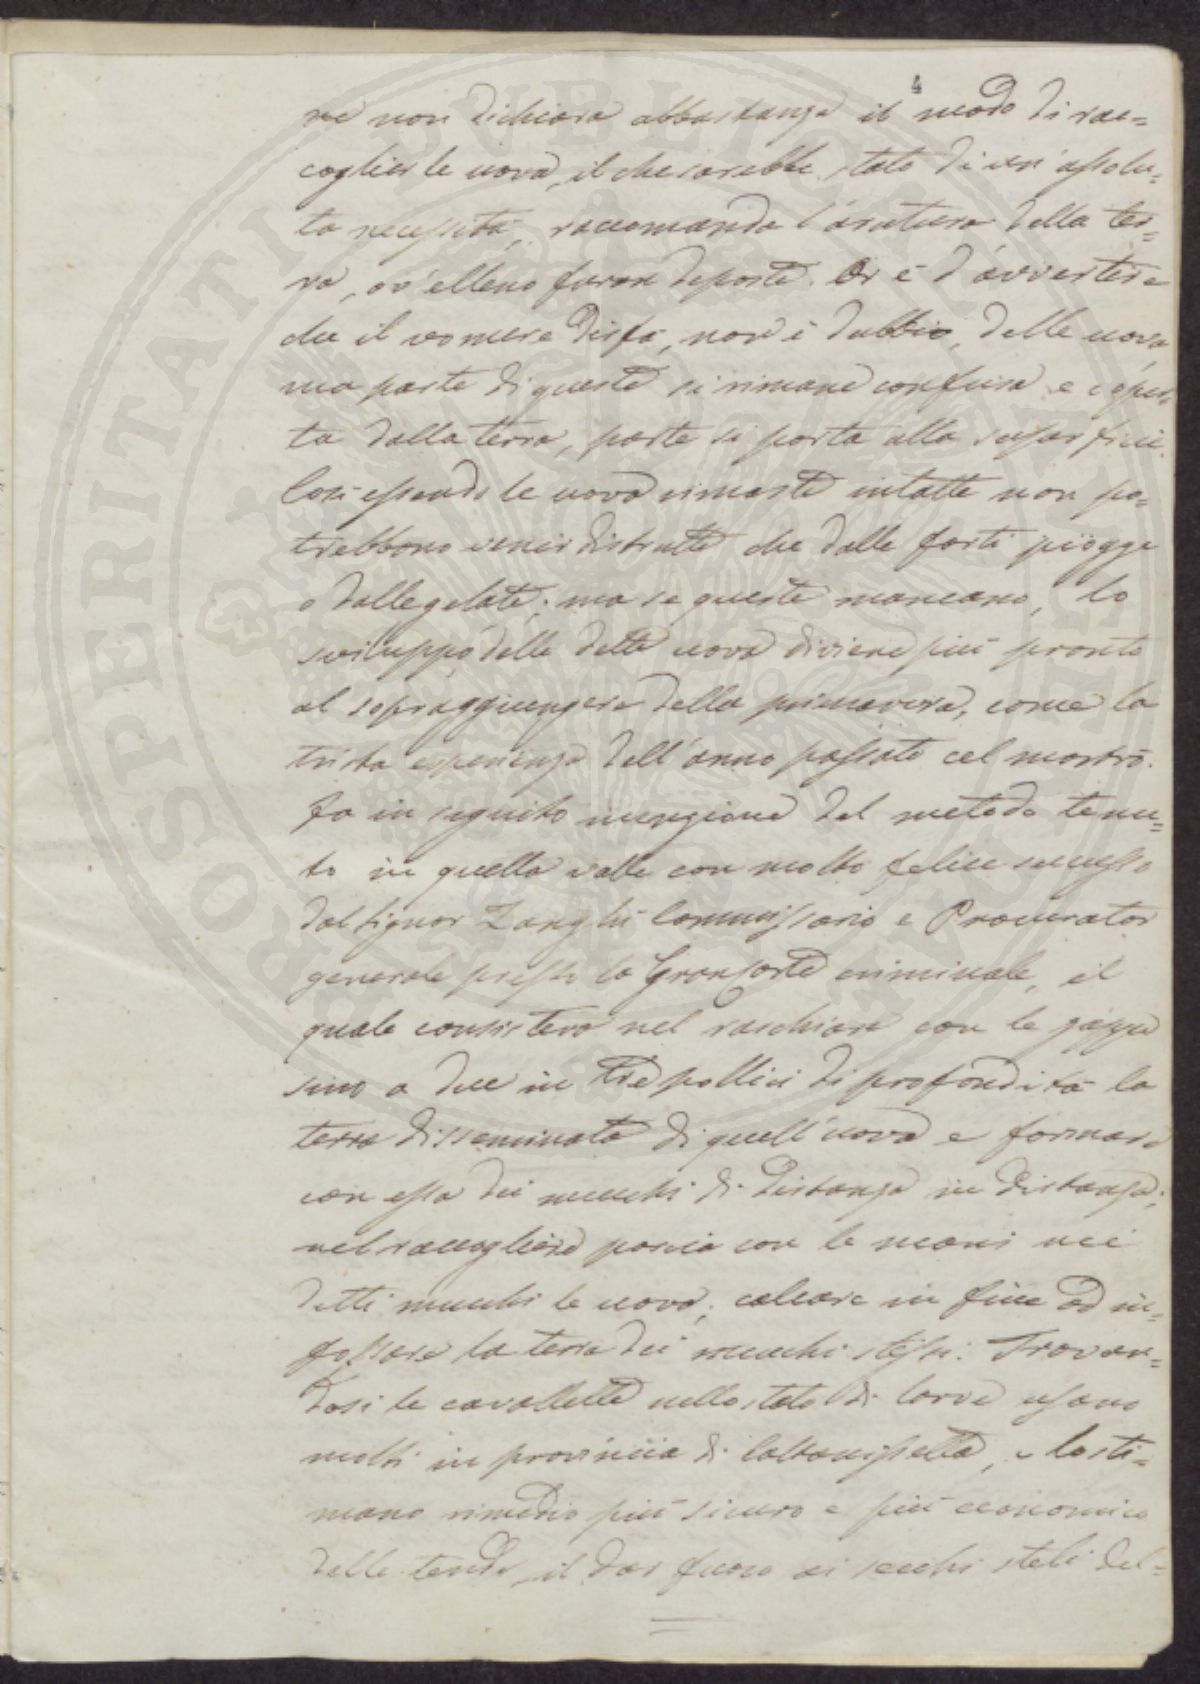 4
re non dichiara abbastanza il modo di rac=
coglier le uova, il che sarebbe stato di un'assolu=
ta necessità, raccomanda l'aratura della ter=
ra, ov'elleno furon deposte. Or è d'avvertere
che il vomere disfà, non è dubbio, delle uova
ma parte di queste si rimane confusa e coper=
ta dalla terra, parte si porta alla superficie.
Così essendo le uova rimaste intatte non po=
trebbono venir distrutte che dalle forti piogge
o dalle gelate; ma se queste mancano, lo
sviluppo delle dette uova diviene più pronto
al sopraggiungere della primavera, come la
trista esperienza dell'anno passato cel mostrò.
Fa in seguito menzione del metodo tenu=
to in quella valle con molto felice successo
dal signor Zanghì Commissario e Procurator
generale presso la Gran Corte criminale, il
quale consisteva nel raschiare con le zappe
sino a due in tre pollici di profondità la
terra disseminata di quell'uova e formare
con essa dei mucchi di distanza in distanza;
nel raccogliere poscia con le mani nei
detti mucchi le uova; calcare in fine ed in=
fossare la terra dei mucchi stessi. Trovan=
dosi le cavallette nello stato di larve usano
molti in provincia di Caltanissetta, e lo sti=
mano rimedio più sicuro e più economico
delle tende, il dar fuoco ai secchi steli del=
PROSPERITATI PUBLICAE